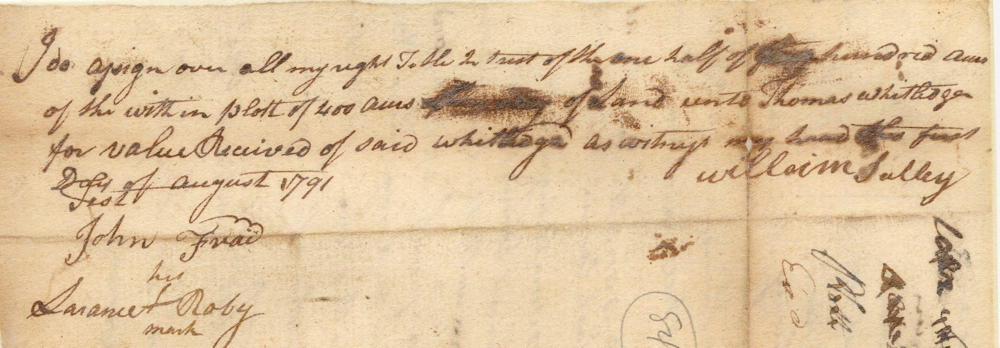 I do asign over all my right Title In trust of the one half of hundred acers
of the with in plott of 400 acers of Land unto Thomas Whitledge
for value Received of said Whitledge as witness my hand this first
Day of august 1791
William Salley
Test
John Fraid
his
Larance + Roby
mark